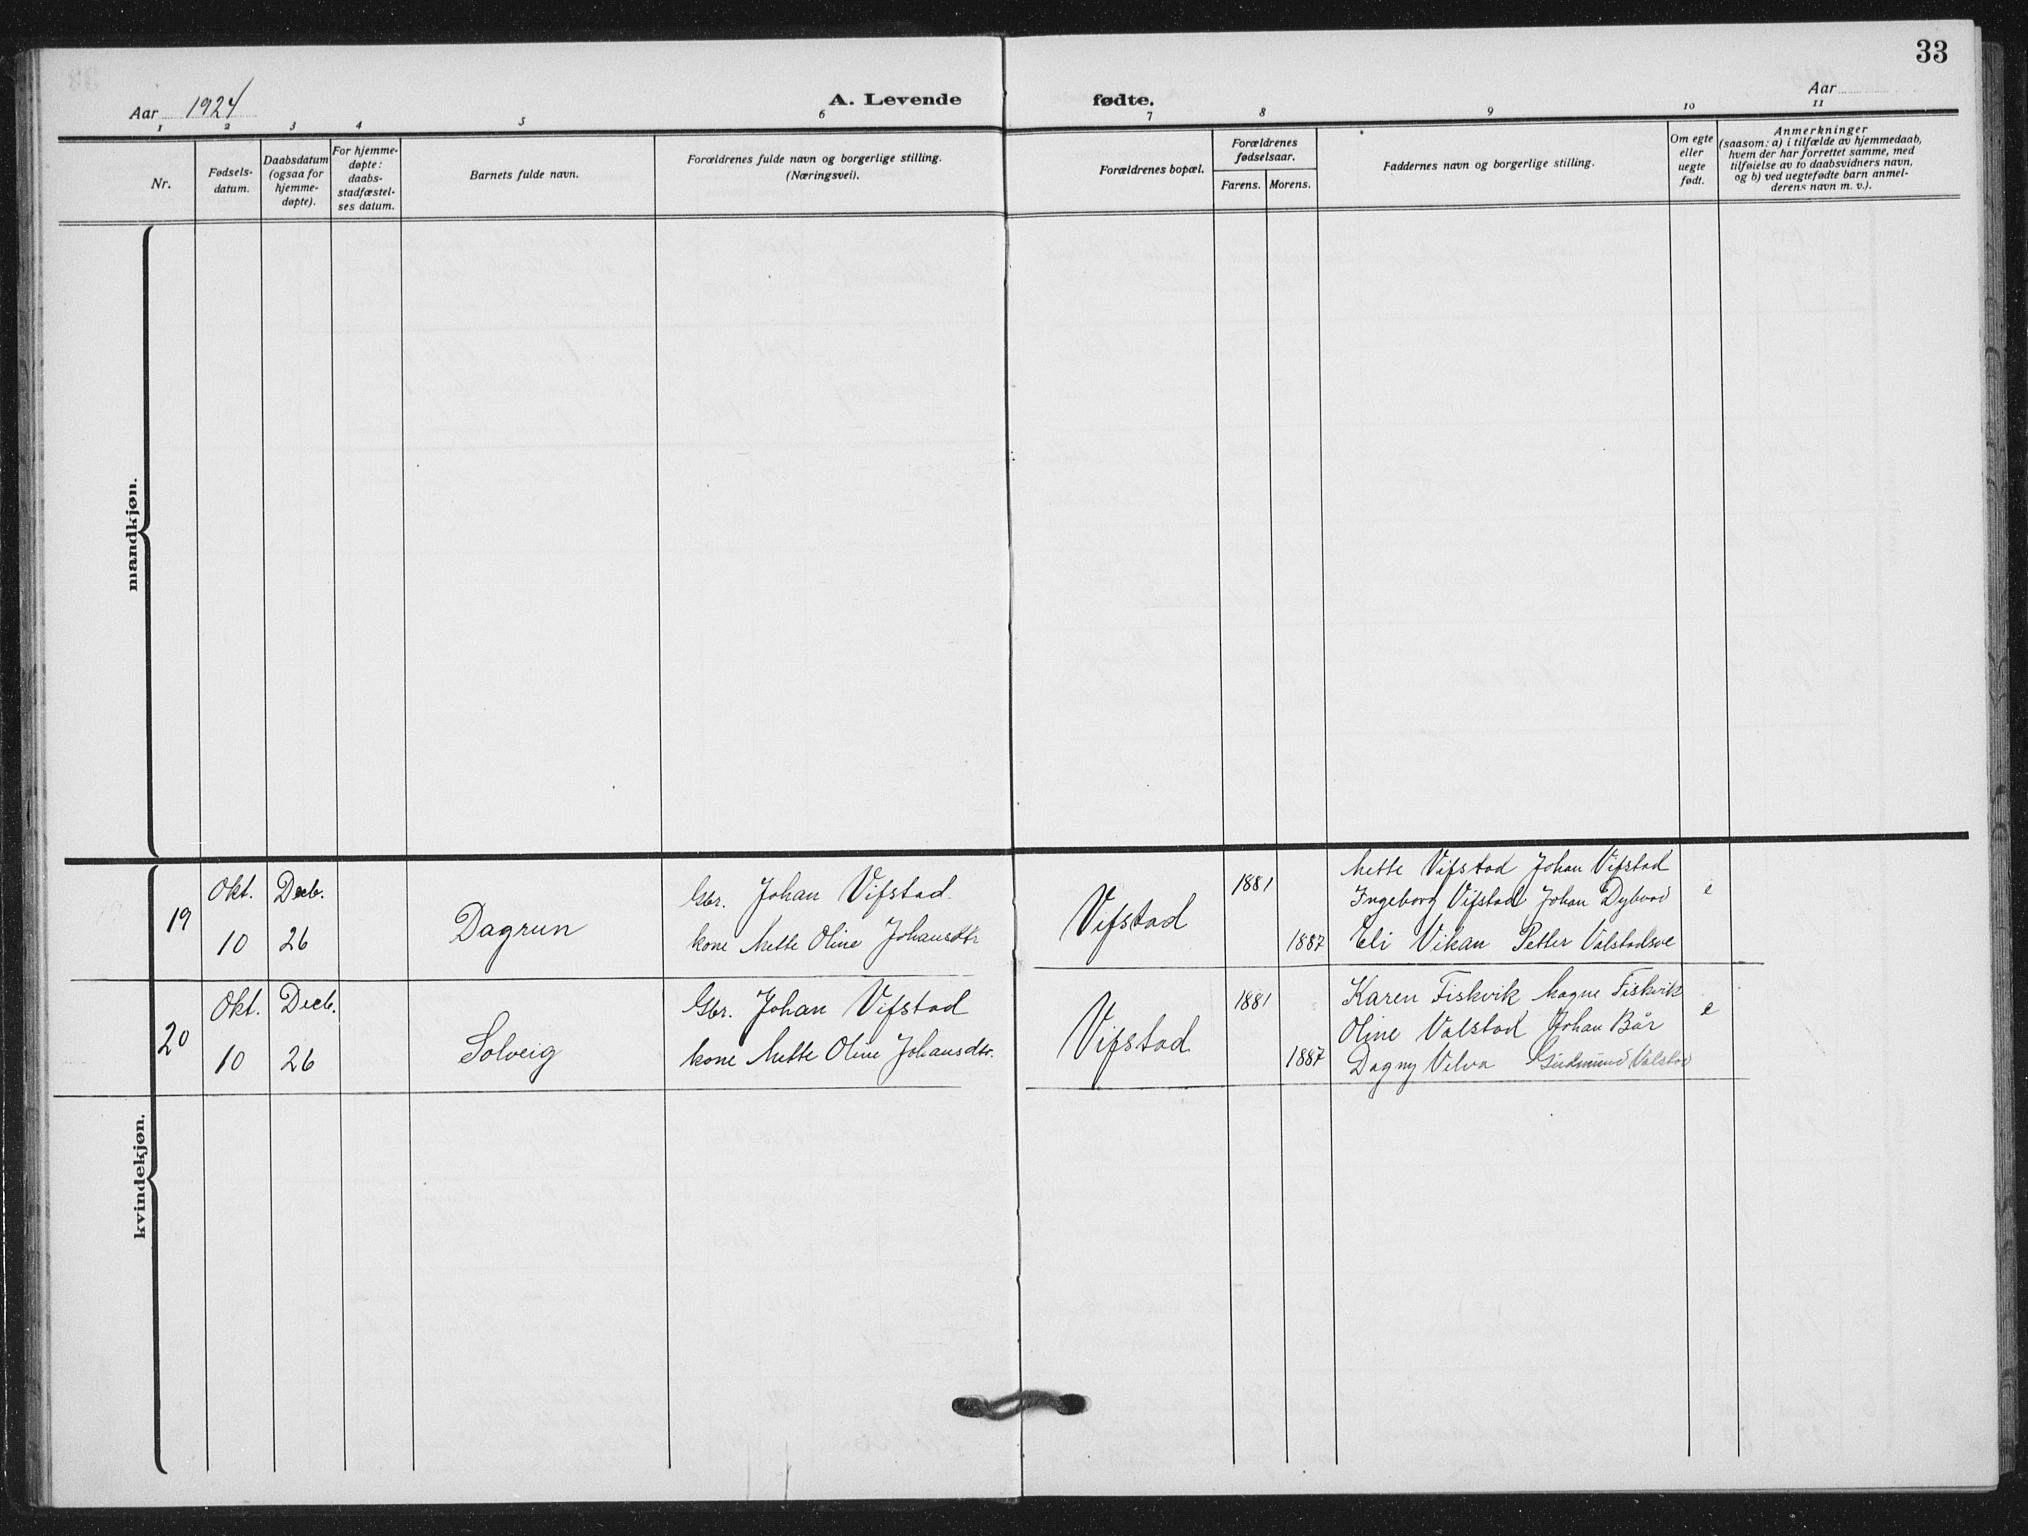 33
Aar 1924
A. Levende fødte.
Aar
1 2 3 4 5 6 7 8 9 10 11
Nr.
Fødsels-
datum.
Daabsdatum
(ogsaa for
hjemme-
døpte).
For hjemme-
døpte:
daabs-
stadfæstel-
ses datum.
Barnets fulde navn.
Forældrenes fulde navn og borgerlige stilling.
(Næringsvei).
Forældrenes bopæl.
Forældrenes
fødselsaar.
Farens. Morens.
Faddernes navn og borgerlige stilling.
Om egte
eller
uegte
født.
Anmerkninger
(saasom: a) i tilfælde av hjemmedaab,
hvem der har forrettet samme, med
tilføielse av to daabsvidners navn,
og b) ved uegtefødte barn anmel-
derens navn m. v.).
mandkjøn.
kvindekjøn.
19
Okt.
10
Decb.
26
Dagrun
Gbr. Johan Vifstad
kone Mette Oline Johansdtr
Vifstad
1881
1887
Mette Vifstad Johan Vifstad
Ingeborg Vifstad Johan Dybvad
Eli Vikan Petter Valstadsve
e
20
Okt.
10
Decb.
26
Solveig
Gbr. Johan Vifstad
kone Mette Oline Johansdtr.
Vifstad
1881
1887
Karen Fiskvik Magne Fiskvik
Oline Valstad Johan Bår
Dagny Vilva Gudmund Valstad
e